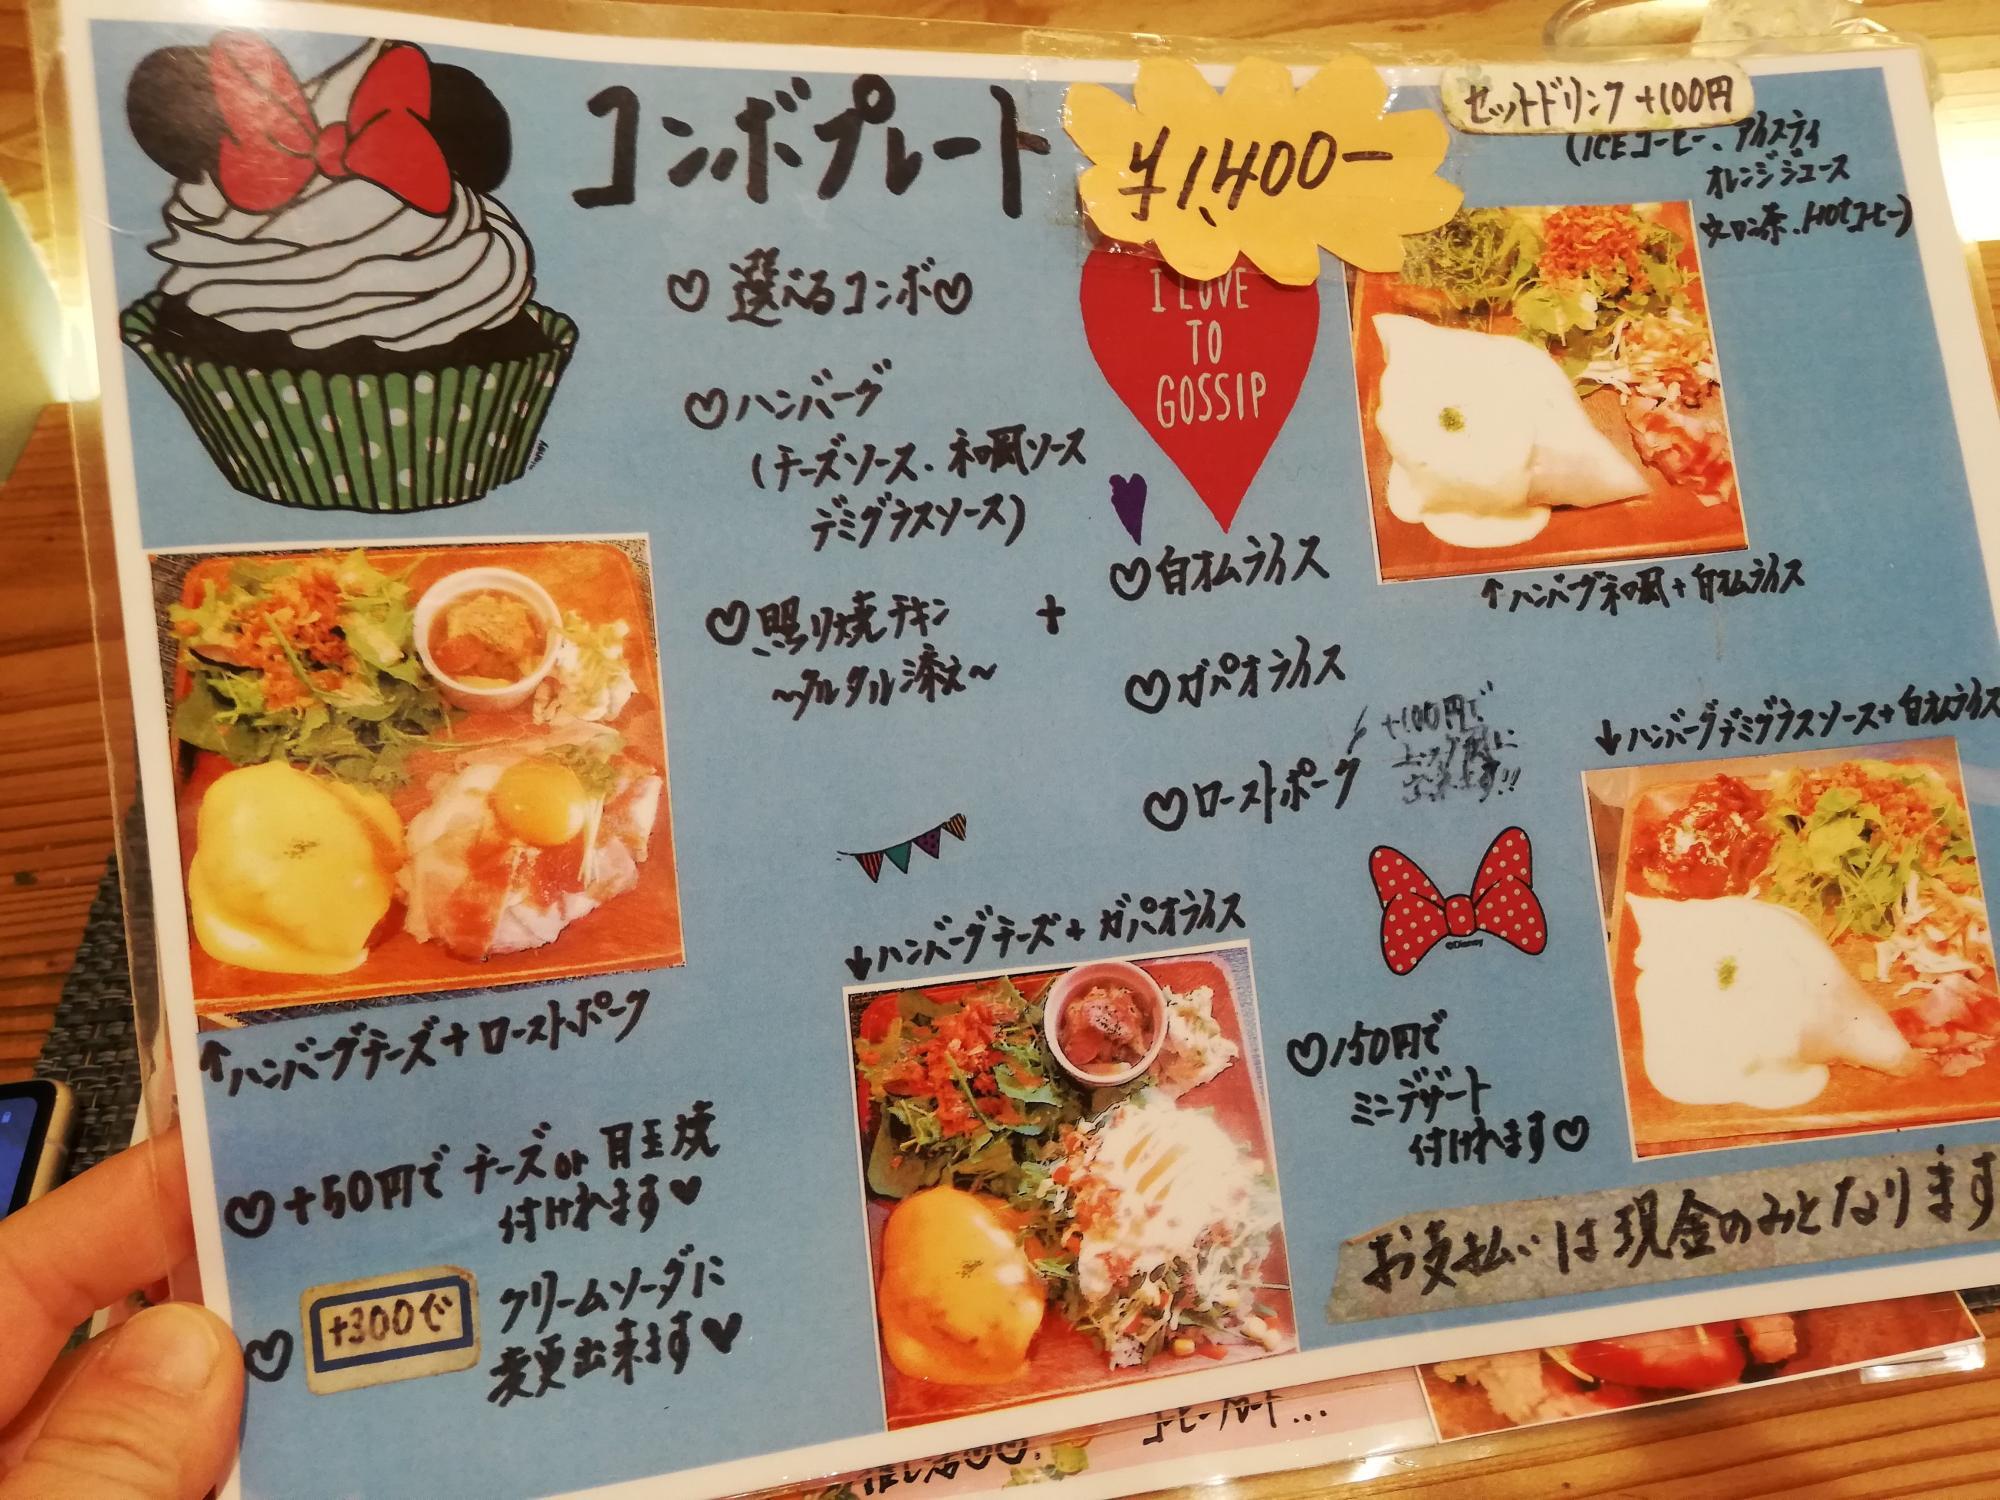 コンボプレート
¥1,400-
セットドリンク+100円
(ICEコーヒー、アイスティ
オレンジジュース
ウーロン茶、HOTコーヒー)
♡選べるコンボ♡
I LOVE
TO
GOSSIP
♡ハンバーグ
(チーズソース、和風ソース
デミグラスソース)
♡照り焼チキン
~タルタル添え~
+
♡白オムライス
♡ガパオライス
♡ローストポーク
+100円で
↑ハンバーグ和風+白オムライス
↓ハンバーグデミグラスソース+白オムライス
↓ハンバーグチーズ+ガパオライス
↑ハンバーグチーズ+ローストポーク
©Disney
♡150円で
ミニデザート
付けれます♡
♡+50円でチーズor目玉焼
付けれます♥
♡+300で クリームソーダに
変更出来ます♥
お支払いは現金のみとなります